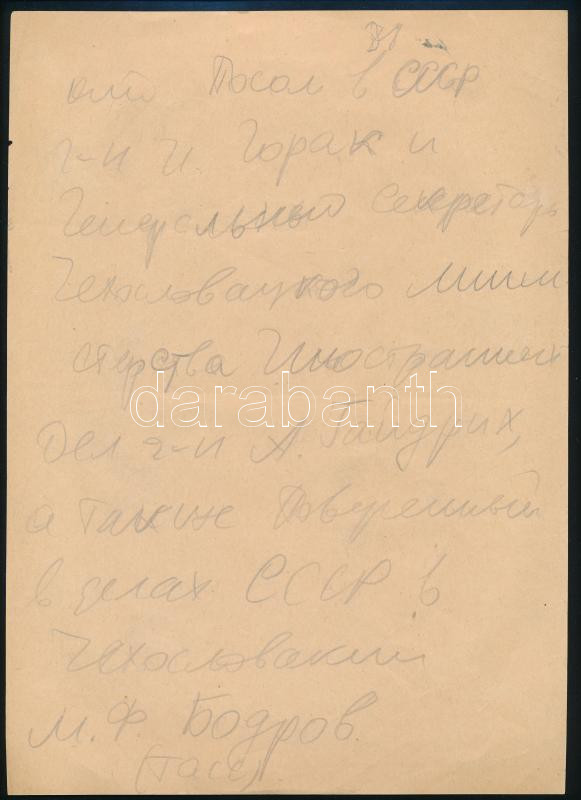 Посол в СССР
г-н И. Горак и
Генеральный секретарь
Чехословацкого Мини
стерства Иностранных
Дел г-н А. Гайдрих,
а также Поверенный
в делах СССР в
Чехословакии
М. Ф. Бодров
(ТАСС)
darabanth